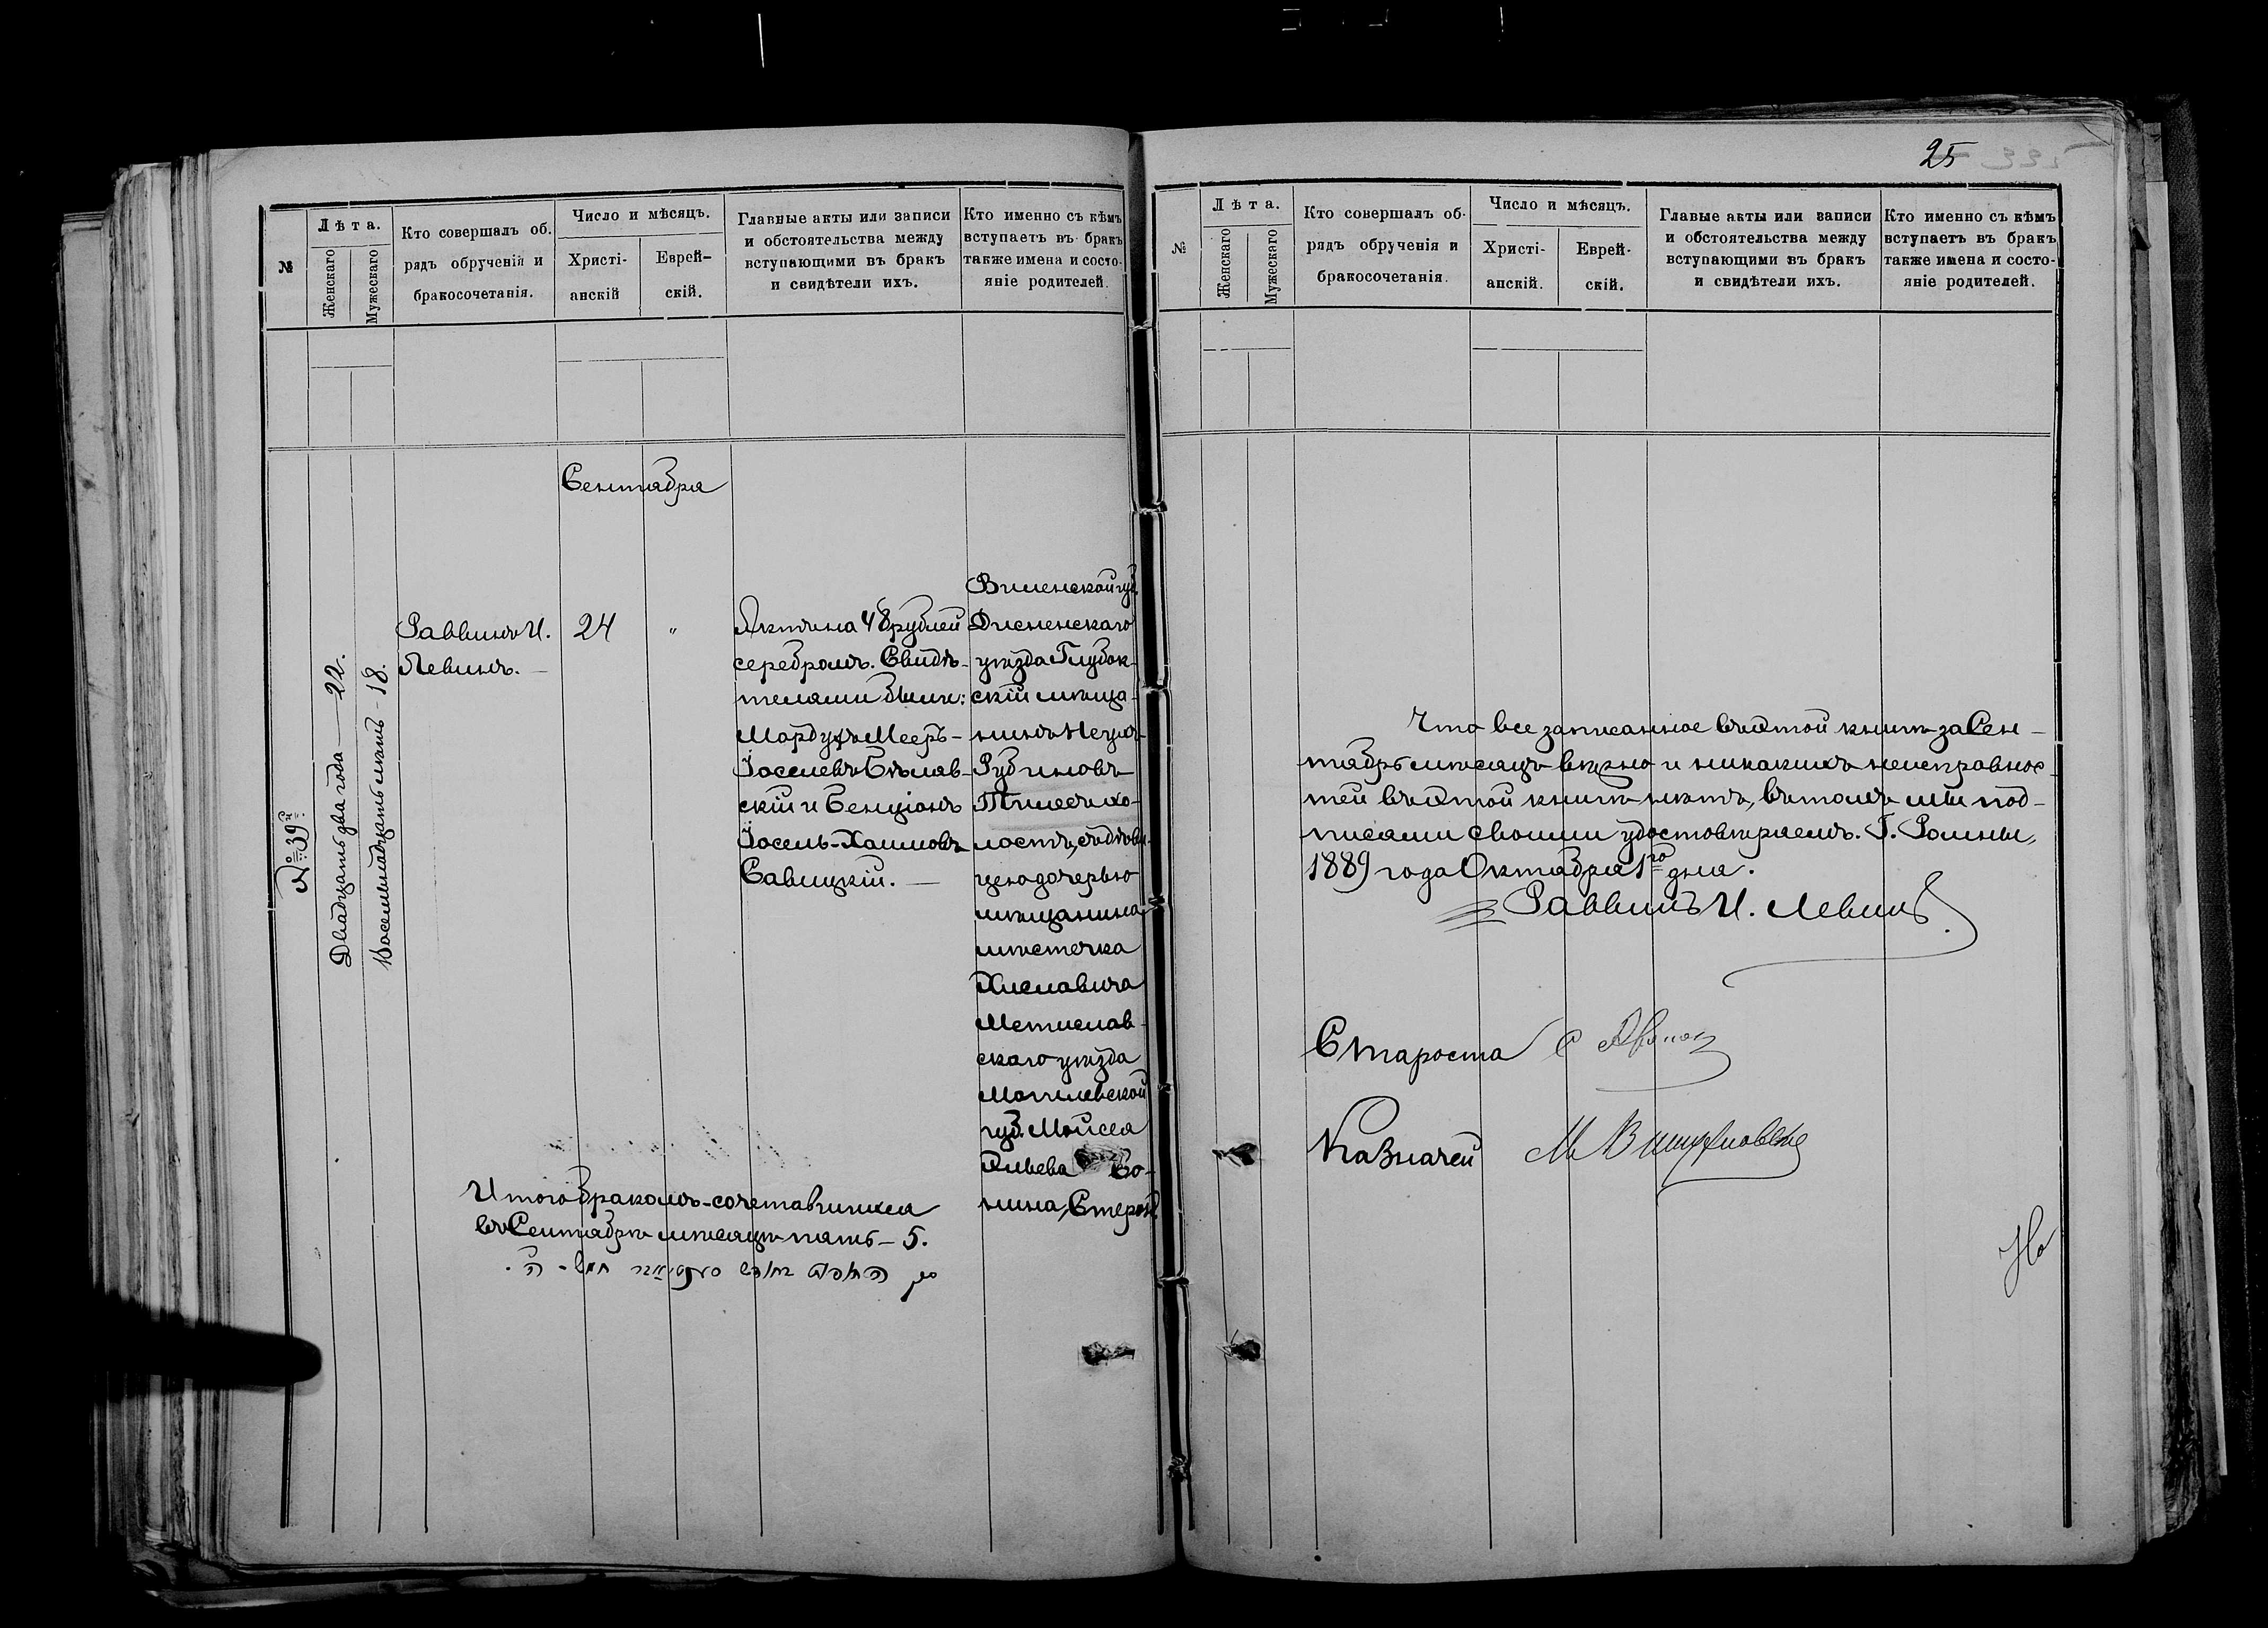 №
Лѣта.
Женскаго
Мужескаго
Кто совершалъ об-
рядъ обрученія и
бракосочетанія.
Число и мѣсяцъ.
Христі-
анскій
Еврей-
скій.
Главные акты или записи
и обстоятельства между
вступающими въ бракъ
и свидѣтели ихъ.
Кто именно съ кѣмъ
вступаетъ въ бракъ
также имена и состо-
яніе родителей.
Сентября
№ 39й.
Двадцать два года — 22.
Восемнадцать лѣтъ - 18.
Раввинъ И.
Левинъ. —
24
"
Актъ на 48 рублей
серебромъ. Свидѣ-
телями были:
Мордухъ Мееръ-
Іоселевъ Бѣляв-
скій и Бенціонъ
Іосель-Хаимовъ
Савицкій. —
Виленской губ.
Дисненскаго
уѣзда Глубок-
скій мѣща-
нинъ
Рубиновъ
хо-
лостъ, съ дѣви-
цею дочерью
мѣщанина
мѣстечка
Хиславича
Мстислав-
скаго уѣзда
Могилевской
губ. Мойсея
нина, Стерою.
Итого бракомъ-сочетавшихся
въ Сентябрѣ мѣсяцѣ пять – 5.
25
№
Лѣта.
Женскаго
Мужескаго
Кто совершалъ об-
рядъ обрученія и
бракосочетанія.
Число и мѣсяцъ.
Христі-
анскій.
Еврей-
скій.
Главые акты или записи
и обстоятельства между
вступающими въ бракъ
и свидѣтели ихъ.
Кто именно съ кѣмъ
вступаетъ въ бракъ
также имена и состо-
яніе родителей.
Что все записанное въ этой книгѣ за Сен-
тябрь мѣсяцъ вѣрно и никакихъ неисправнос-
тей въ этой книгѣ нѣтъ, въ томъ мы под-
писами своими удостовѣряемъ. Г. Ромны,
1889 года Октября 1го дня.
Раввинъ И. Левинъ
Староста
Казначей
Но